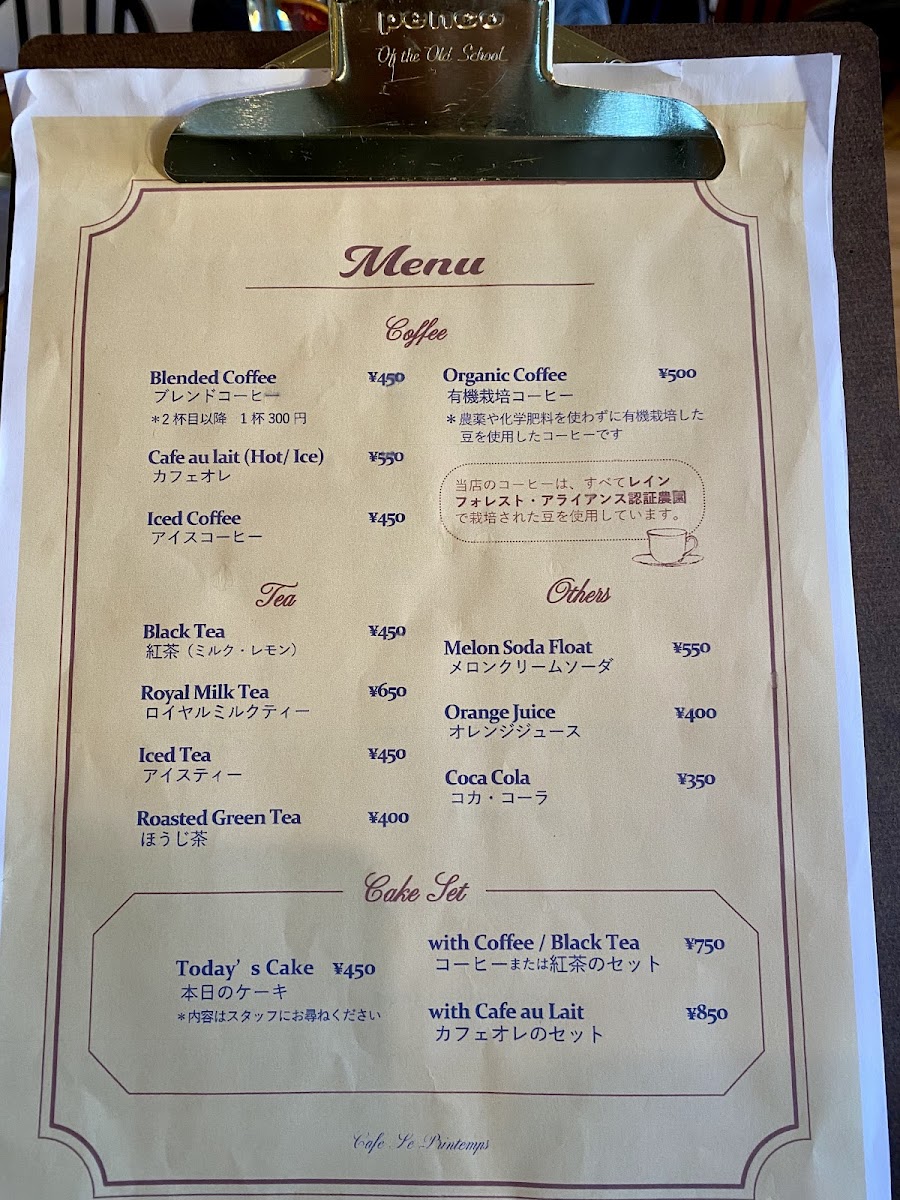 penco
On the Old School
Menu
Coffee
Blended Coffee ¥450
ブレンドコーヒー
＊2杯目以降 1杯300円
Cafe au lait (Hot/ Ice) ¥550
カフェオレ
Iced Coffee ¥450
アイスコーヒー
Organic Coffee ¥500
有機栽培コーヒー
＊農薬や化学肥料を使わずに有機栽培した
豆を使用したコーヒーです
当店のコーヒーは、すべてレイン
フォレスト・アライアンス認証農園
で栽培された豆を使用しています。
Tea
Black Tea ¥450
紅茶（ミルク・レモン）
Royal Milk Tea ¥650
ロイヤルミルクティー
Iced Tea ¥450
アイスティー
Roasted Green Tea ¥400
ほうじ茶
Others
Melon Soda Float ¥550
メロンクリームソーダ
Orange Juice ¥400
オレンジジュース
Coca Cola ¥350
コカ・コーラ
Cake Set
Today's Cake ¥450
本日のケーキ
＊内容はスタッフにお尋ねください
with Coffee / Black Tea ¥750
コーヒーまたは紅茶のセット
with Cafe au Lait ¥850
カフェオレのセット
Cafe Le Printemps